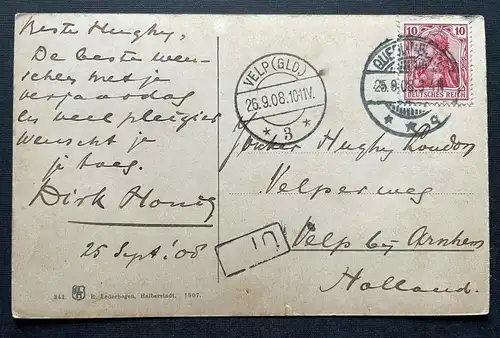 Beste Hughy,
De beste wen-
schen met je
verjaardag
en veel pleizier
wenscht je
je toeg.
Dirk Honig
25 Sept! 08
VELP (GLD.)
26.9.08.10-11V.
* 3 *
10 10
DEUTSCHES REICH
25.9.08.
* * a
Jonker Hughy Loudon
Velperweg
Velp bij Arnhem
Holland.
341 R. Lederbogen, Halberstadt, 1907.